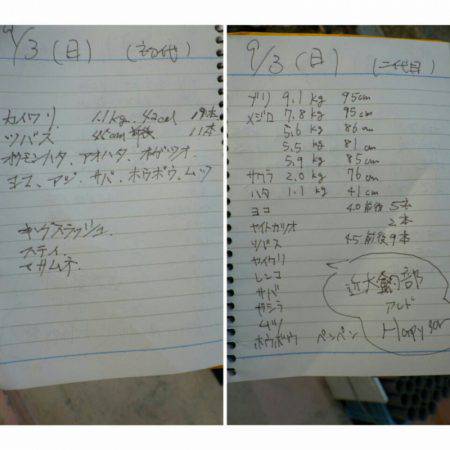 9/3(日) (初代)
カイワリ 1.1kg 42cm 19本
ツバス 45cm前後 11本
オオモンハタ、アオハタ、オガツオ
ヨコ、アジ、サバ、ホウボウ、ムツ
キングスラッシュ
ステイ
マサムネ
9/3(日) (二代目)
ブリ 9.1kg 95cm
メジロ 7.8kg 95cm
5.6kg 86cm
5.5kg 81cm
5.9kg 85cm
サワラ 2.0kg 76cm
ハタ 1.1kg 41cm
ヨコ 40前後 5本
ヤイトガツオ 2本
ツバス 45前後9本
カイワリ
レンコ
サバ
ガシラ
ムツ
ホウボウ ペンペン
近大釣部
アンド
Happy